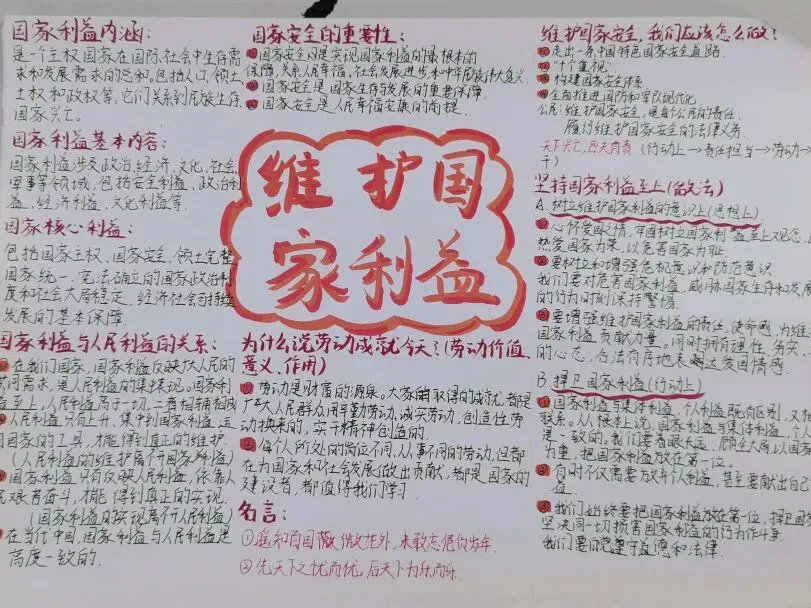 国家利益内涵：
是一个主权国家在国际社会中生存需
求和发展需求的总和。包括人口、领土
主权和政权等，它们关系到民族生存、
国家兴亡。
国家利益基本内容：
国家利益涉及政治、经济、文化、社会、
军事等领域，包括安全利益、政治利
益、经济利益、文化利益等。
国家核心利益：
包括国家主权、国家安全、领土完整
国家统一、宪法确立的国家政治制
度和社会大局稳定、经济社会可持续
发展的基本保障
国家利益与人民利益的关系：
在我们国家，国家利益反映广大人民的
共同需求，是人民利益的集中表现。国家利
益至上，人民利益高于一切，二者相辅相成
人民利益只有上升、集中到国家利益，运
用国家的工具，才能得到真正的维护。
（人民利益的维护离不开国家利益）
国家利益只有反映人民利益，依靠人
民艰苦奋斗，才能得到真正的实现。
（国家利益的实现离不开人民利益）
在当代中国，国家利益与人民利益是
高度一致的.
国家安全的重要性：
国家安全是实现国家利益的最根本的
保障，关系人民幸福、社会发展进步和中华民族伟大复兴
国家安全是国家生存发展的重要保障.
国家安全是人民幸福安康的前提.
维护国
家利益
为什么说劳动成就今天？（劳动价值、
意义、作用）
劳动是财富的源泉。大家的取得的成就，都是
广大人民群众用辛勤劳动、诚实劳动，创造性劳
动换来的，实干精神创造的。
每个人所处的岗位不同，从事不同的劳动，但都
在为国家和社会发展做出贡献，都是国家的
建设者，都值得我们学习
名言：
①遥知百国微茫外，未敢忘危负岁年.
②先天下之忧而忧，后天下为乐而乐.
维护国家安全，我们应该怎么做？
①走出一条中国特色国家安全道路.
②"十个重视"
③构建国家安全体系
④全面推进国防和军队现代化
公民：维护国家安全，是每个公民的责任，
履行维护国家安全的法律义务.
天下兴亡，匹夫有责（行动上→责任担当→劳动→
干）
坚持国家利益至上（做法）
A.树立维护国家利益的意识上（思想上）
①心怀爱国之情，牢固树立国家利益至上观念，以
热爱国家为荣，以危害国家为耻
②要树立和增强危机意识和防范意识
我们要对危害国家利益、威胁国家生存和发展
的行为时刻保持警惕.
③要增强维护国家利益的责任、使命感，为维
国家利益贡献力量。同时拥有理性、务实
的心态，合法有序地表达爱国情感.
B.捍卫国家利益（行动上）
①国家利益与集体利益、个人利益既有区别，又相
联系。从根本上说，国家利益与集体利益、个人
是一致的。我们要着眼长远、顾全大局，以国家
为重，把国家利益放在第一位。
②有时不仅需要放弃个人利益，甚至要献出自己
益.
③我们始终要把国家利益放在第一位，捍卫国
坚决同一切损害国家利益的行为作斗争
我们要自觉遵守道德和法律.